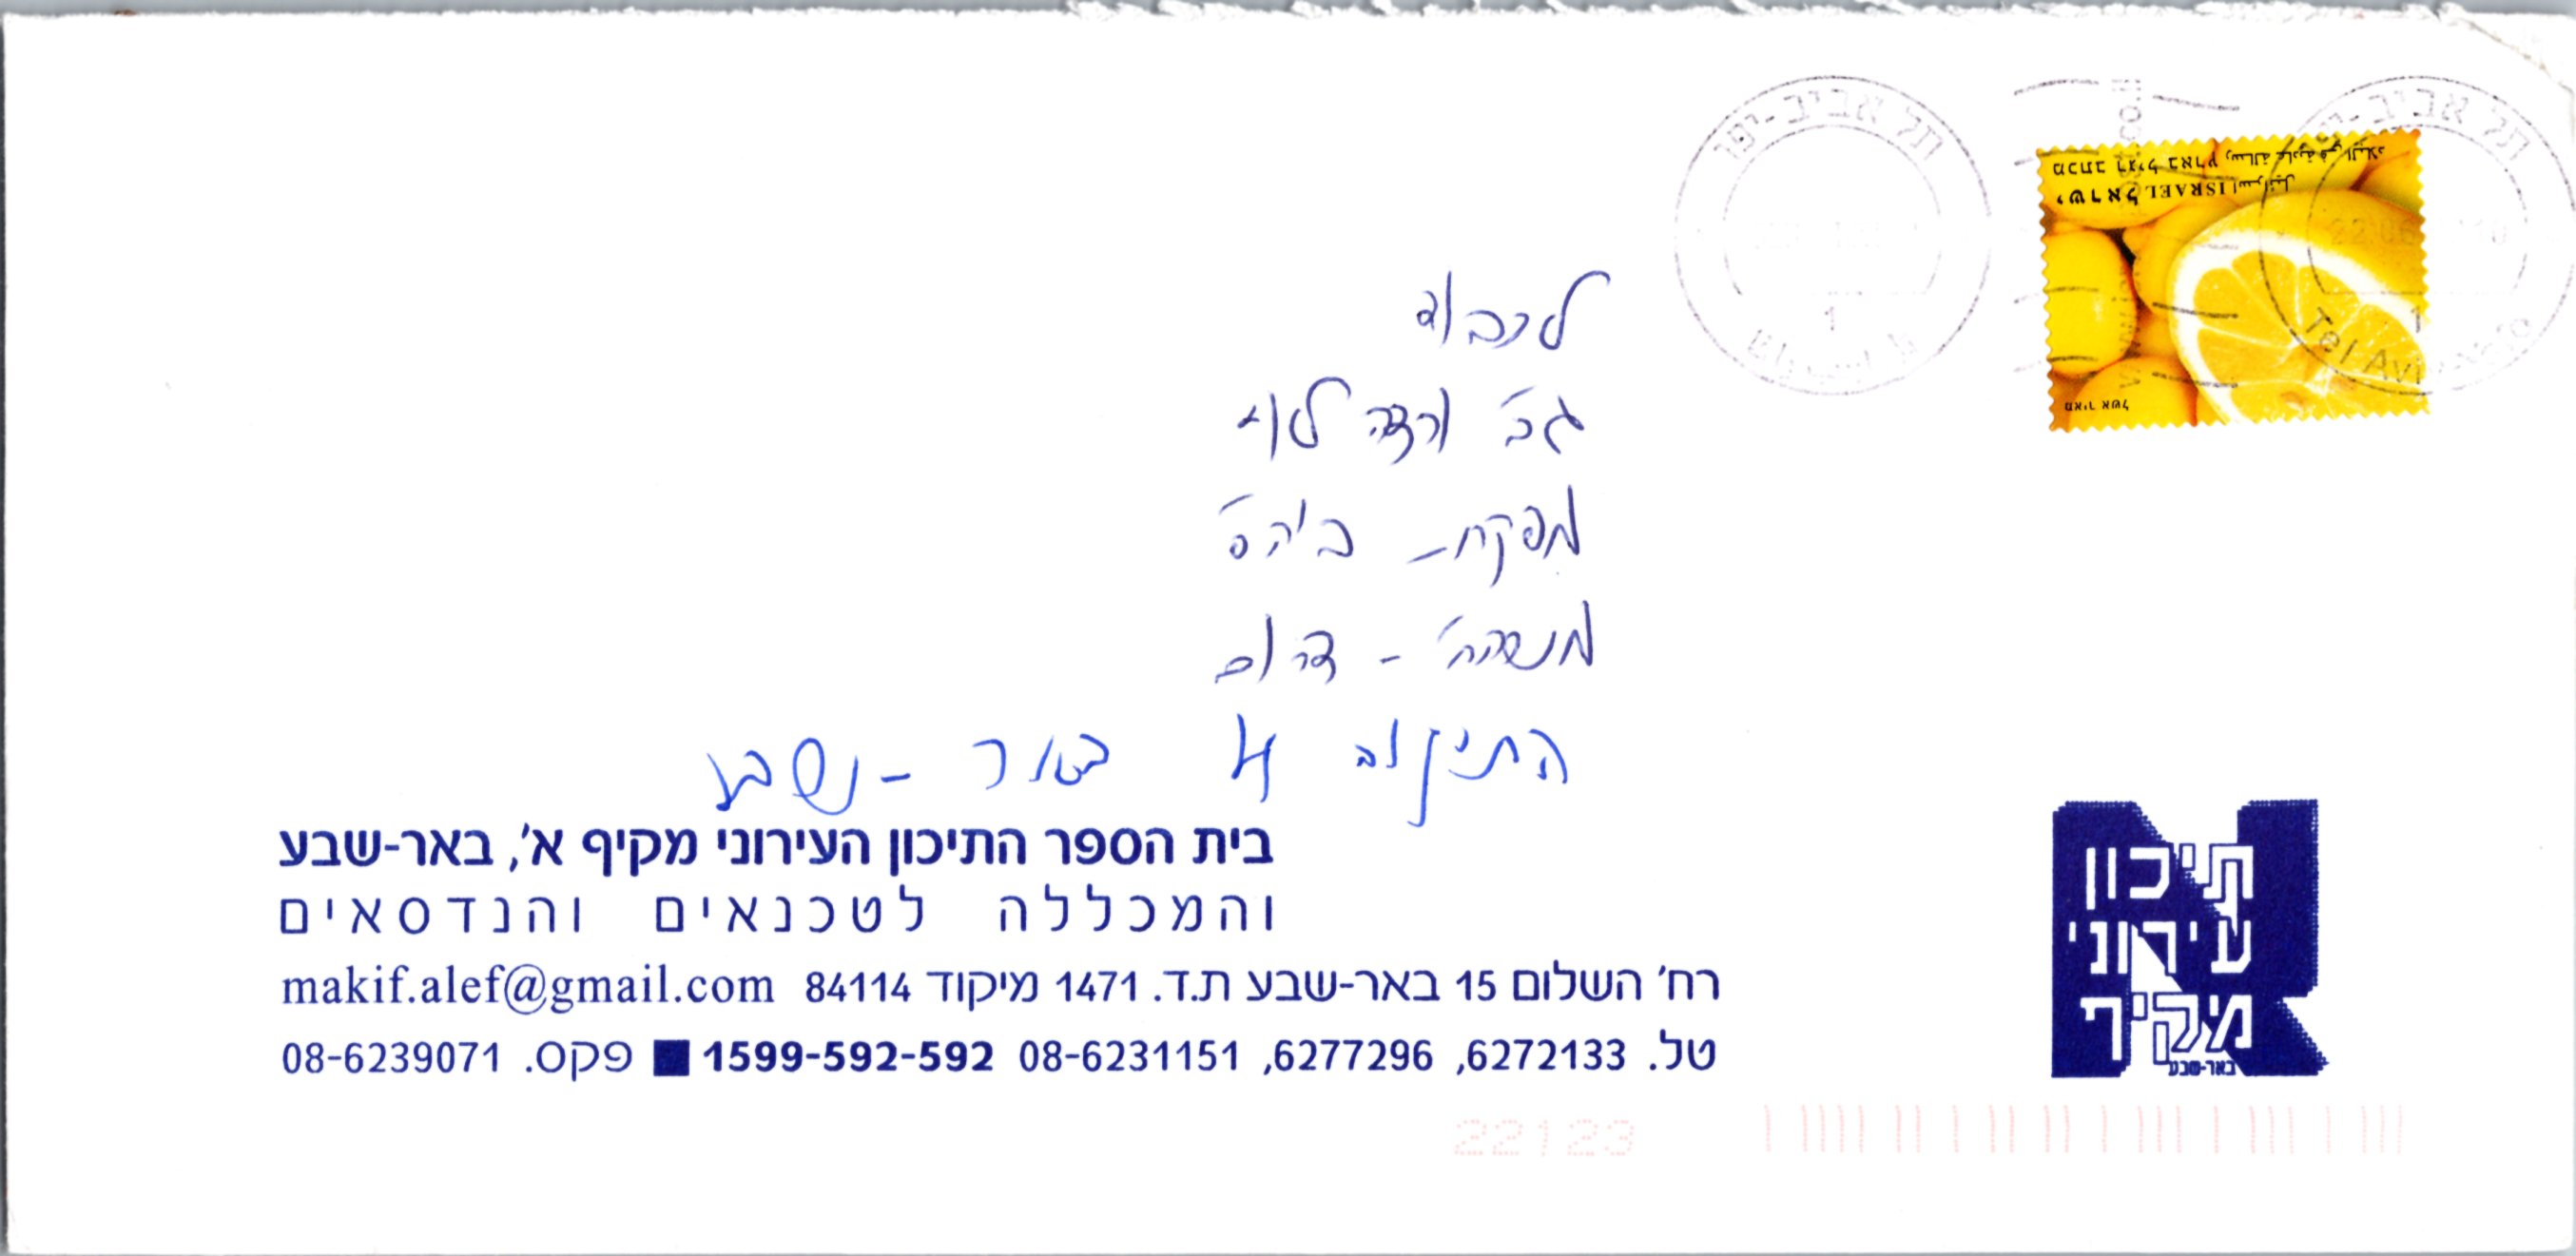 תל אביב-יפו
1
תל אביב-יפו
22.06
1
Tel Aviv-Yafo
מכתב רגיל בארץ رسالة عادية في البلاد
ישראל ISRAEL اسرائيل
מאיר אשל
לכבוד
גב' ורדה לוי
מפקח- ביה"ס
משהח' - דרום
התיקוה 4 באר - שבע
בית הספר התיכון העירוני מקיף א', באר-שבע
והמכללה לטכנאים והנדסאים
רח' השלום 15 באר-שבע ת.ד. 1471 מיקוד 84114 makif.alef@gmail.com
טל. 6272133, 6277296, 08-6231151 1599-592-592 ■ פקס. 08-6239071
תיכון
עירוני
מקיף
באר-שבע
22123